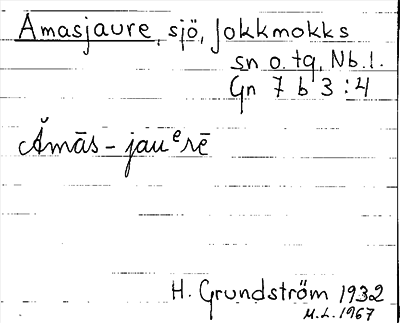 Åmasjaure, sjö, Jokkmokks
sn o. tg, Nb.l.
Gn 7 b 3 : 4
Ǎmās - jauᵉrē
H. Grundström 1932
M.L. 1967